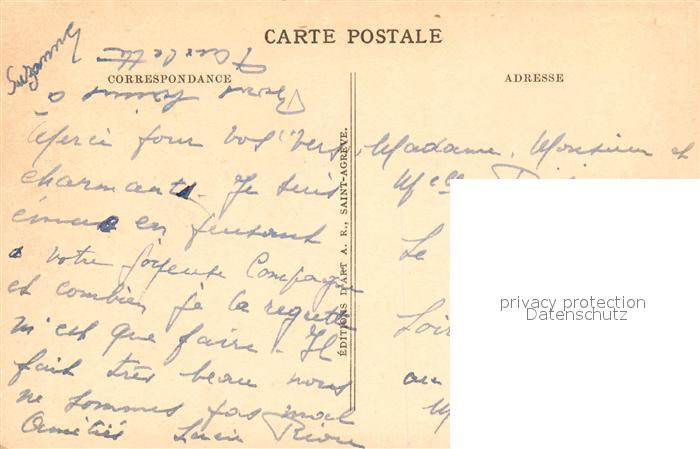 CARTE POSTALE
CORRESPONDANCE
ADRESSE
Suzanne
Paulette
à
Merci pour vos vers
charmants. Je suis
émue en pensant
à votre joyeuse Compagnie
et combien je la regrette
n'est que faire. Il
fait très beau nous
ne sommes pas mal
Amitiés Lucie
ÉDITIONS D'ART A. R., SAINT-AGRÈVE.
Madame, Monsieur et
Melle
Le
Loir
au
M
privacy protection
Datenschutz